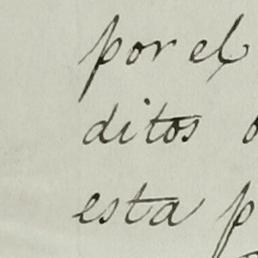 por el
ditos
esta p